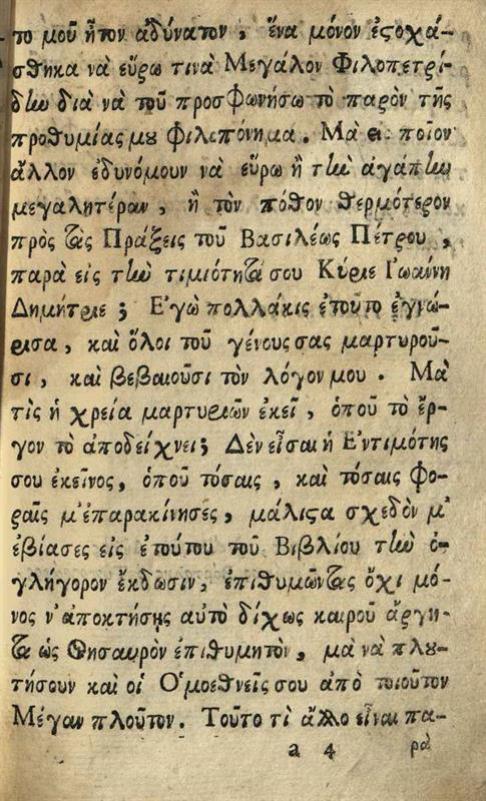 το μοῦ ἦτον ἀδύνατον, ἕνα μόνον ἐστοχά-
σθηκα νὰ εὕρω τινὰ Μεγάλον Φιλοπετρί-
δην διὰ νὰ τοῦ προσφωνήσω τὸ παρὸν τῆς
προθυμίας μου φιλοπόνημα. Μὰ εἰς ποῖον
ἄλλον ἐδυνόμουν νὰ εὕρω ἢ τὴν ἀγάπην
μεγαλητέραν, ἢ τὸν πόθον θερμότερον
πρὸς τὰς Πράξεις τοῦ Βασιλέως Πέτρου,
παρὰ εἰς τὴν τιμιότητά σου Κύριε Ἰωάννη
Δημήτριε; Ἐγὼ πολλάκις ἐτοῦτο ἐγνώ-
ρισα, καὶ ὅλοι τοῦ γένους σας μαρτυροῦ-
σι, καὶ βεβαιοῦσι τὸν λόγον μου. Μὰ
τίς ἡ χρεία μαρτυριῶν ἐκεῖ, ὁποῦ τὸ ἔρ-
γον τὸ ἀποδείχνει; Δὲν εἶσαι ἡ Ἐντιμότης
σου ἐκεῖνος, ὁποῦ τόσαις, καὶ τόσαις φο-
ραῖς μ'ἐπαρακίνησες, μάλιστα σχεδὸν μ'
ἐβίασες εἰς ἐτούτου τοῦ Βιβλίου τὴν ὀ-
γλήγορον ἔκδωσιν, ἐπιθυμῶντας ὄχι μό-
νος ν'ἀποκτήσῃς αὐτὸ δίχως καιροῦ ἄργη-
τα ὡς Θησαυρὸν ἐπιθυμητὸν, μὰ νὰ πλου-
τήσουν καὶ οἱ Ὁμοεθνεῖς σου ἀπὸ τοιοῦτον
Μέγαν πλοῦτον. Τοῦτο τὶ ἄλλο εἶναι πα-
a 4 ρὰ